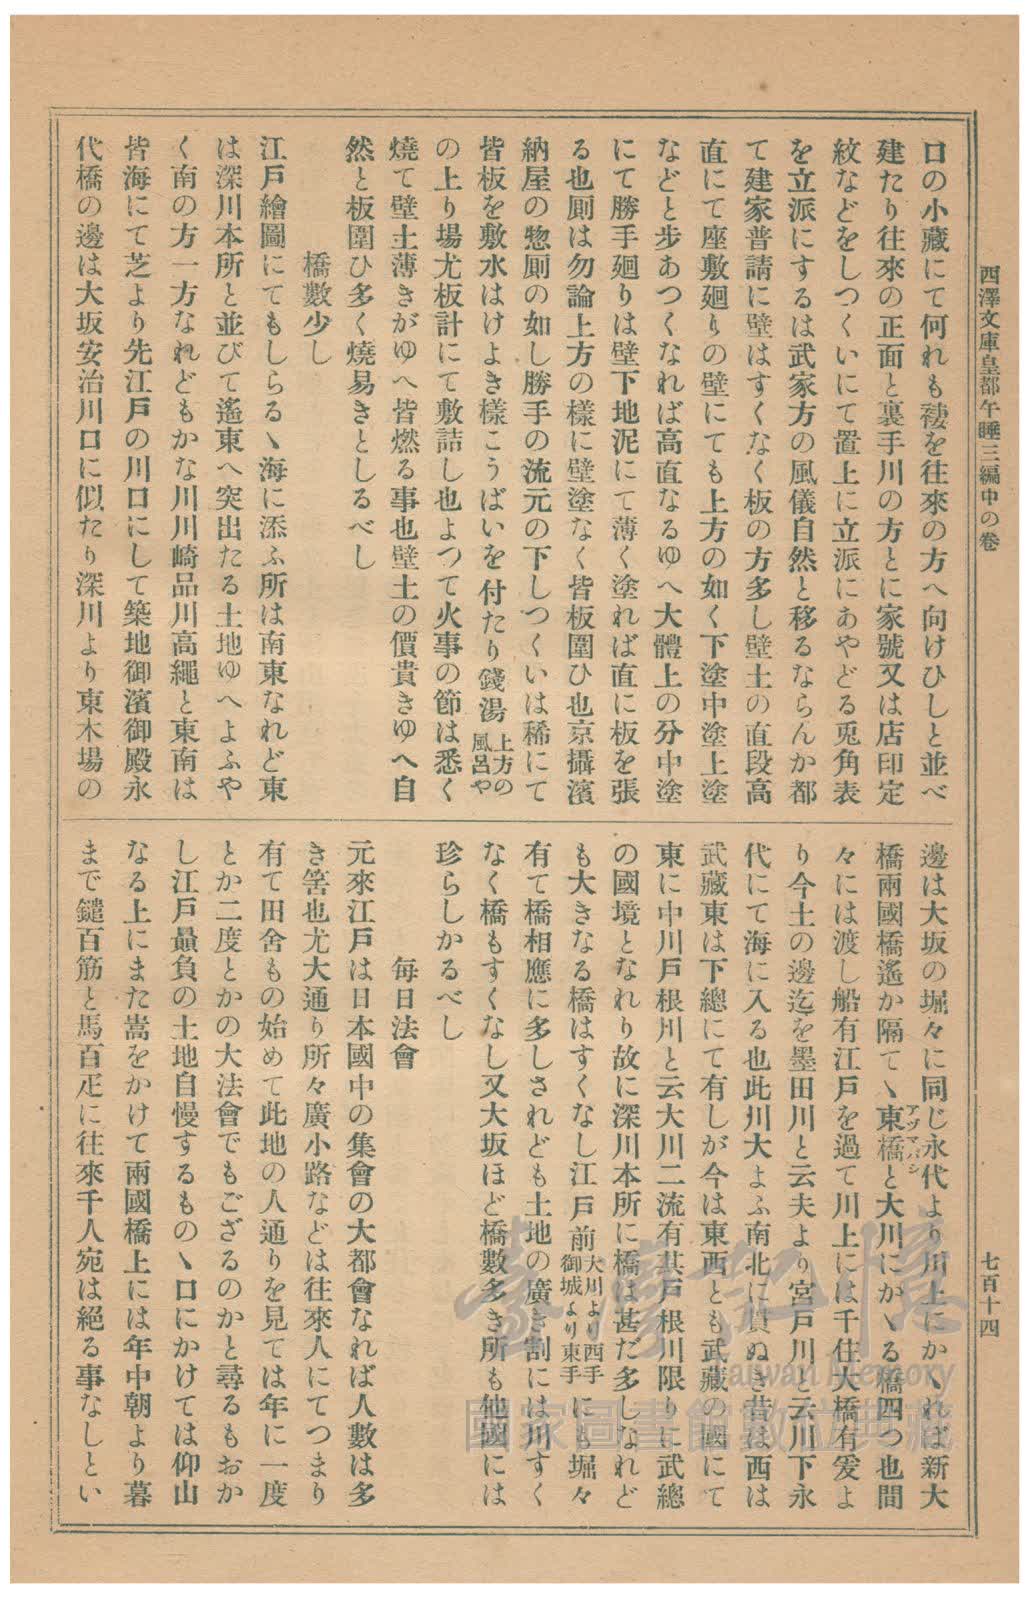 西澤文庫皇都午睡三編中の卷
七百十四
口の小藏にて何れも褄を往來の方へ向けひしと並べ
建たり往來の正面と裏手川の方とに家號又は店印定
紋などをしつくいにて置上に立派にあやどる兎角表
を立派にするは武家方の風儀自然と移るならんか都
て建家普請に壁はすくなく板の方多し壁土の直段高
直にて座敷廻りの壁にても上方の如く下塗中塗上塗
などと步あつくなれば高直なるゆへ大體上の分中塗
にて勝手廻りは壁下地泥にて薄く塗れば直に板を張
る也厠は勿論上方の樣に壁塗なく皆板圍ひ也京攝濱
納屋の惣厠の如し勝手の流元の下しつくいは稀にて
皆板を敷水はけよき樣こうばいを付たり錢湯上方の風呂や
の上り場尤板計にて敷詰し也よつて火事の節は悉く
燒て壁土薄きがゆへ皆燃る事也壁土の價貴きゆへ自
然と板圍ひ多く燒易きとしるべし
橋數少し
江戶繪圖にてもしらるヽ海に添ふ所は南東なれど東
は深川本所と並びて遙東へ突出たる土地ゆへよふや
く南の方一方なれどもかな川川崎品川高繩と東南は
皆海にて芝より先江戶の川口にして築地御濱御殿永
代橋の邊は大坂安治川口に似たり深川より東木場の
邊は大坂の堀々に同じ永代より川上にかヽれば新大
橋兩國橋遙か隔てヽ東橋アヅマバシと大川にかヽる橋四つ也間
々には渡し船有江戶を過て川上には千住大橋有爰よ
り今土の邊迄を墨田川と云夫より宮戶川と云川下永
代にて海に入る也此川大よふ南北に貫ぬき昔は西は
武藏東は下總にて有しが今は東西とも武藏の國にて
東に中川戶根川と云大川二流有其戶根川限りに武總
の國境となれり故に深川本所に橋は甚だ多しなれど
も大きなる橋はすくなし江戶前大川より西手御城より東手にも堀々
有て橋相應に多しされども土地の廣き割には川すく
なく橋もすくなし又大坂ほど橋數多き所も他國には
珍らしかるべし
每日法會
元來江戶は日本國中の集會の大都會なれば人數は多
き筈也尤大通り所々廣小路などは往來人にてつまり
有て田舍もの始めて此地の人通りを見ては年に一度
とか二度とかの大法會でもござるのかと尋るもおか
し江戶贔負の土地自慢するものヽ口にかけては仰山
なる上にまた嵩をかけて兩國橋上には年中朝より暮
まで鑓百筋と馬百疋に往來千人宛は絕る事なしとい
臺灣記憶
Taiwan Memory
國家圖書館數位典藏